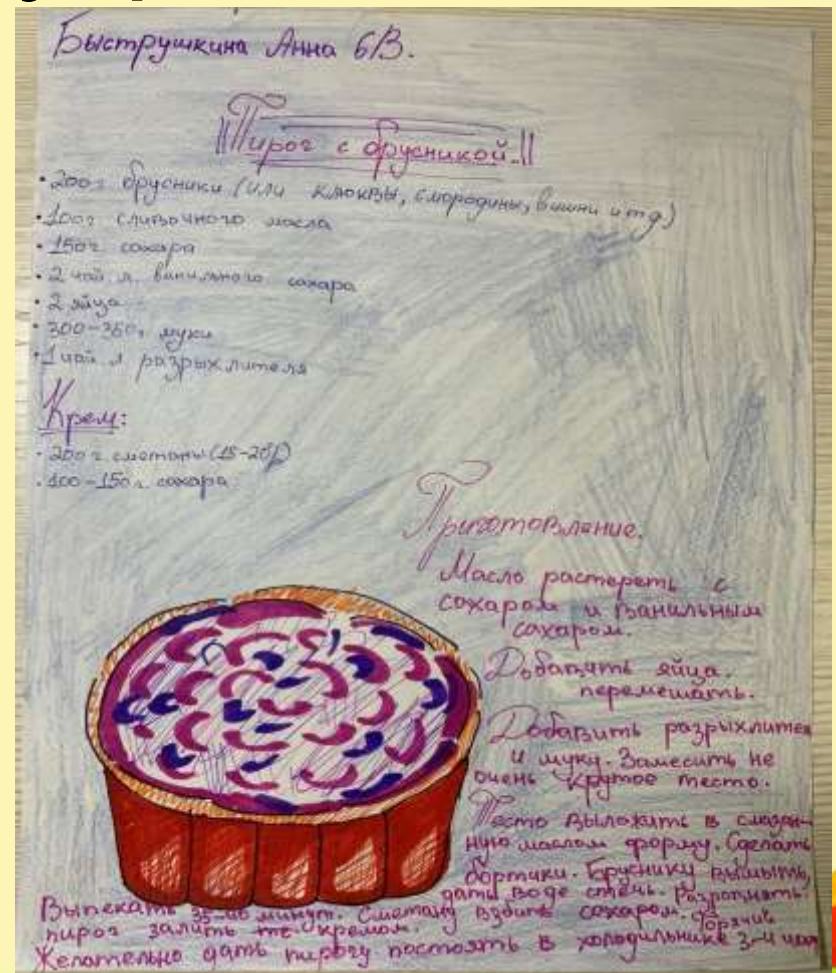 Быструшкина Анна 6В.
Пирог с брусникой.
• 200г брусники (или клюквы, смородины, вишни и тд)
• 100г сливочного масла
• 150г сахара
• 2 чай л. ванильного сахара
• 2 яйца
• 300-350г муки
• 1 чай л разрыхлителя
Крем:
• 200г. сметаны (15-20%)
• 100-150г. сахара
Приготовление.
Масло растереть с
сахаром и ванильным
сахаром.
Добавить яйца.
перемешать.
Добавить разрыхлител
и муку. Замесить не
очень крутое тесто.
Тесто выложить в смазан-
ную маслом форму. Сделать
бортики. Бруснику вымыть,
дать воде стечь. Разровнять.
Выпекать 35-40 минут. Сметану взбить сахаром. Горячий
пирог залить кремом.
Желательно дать пирогу постоять в холодильнике 3-4 час